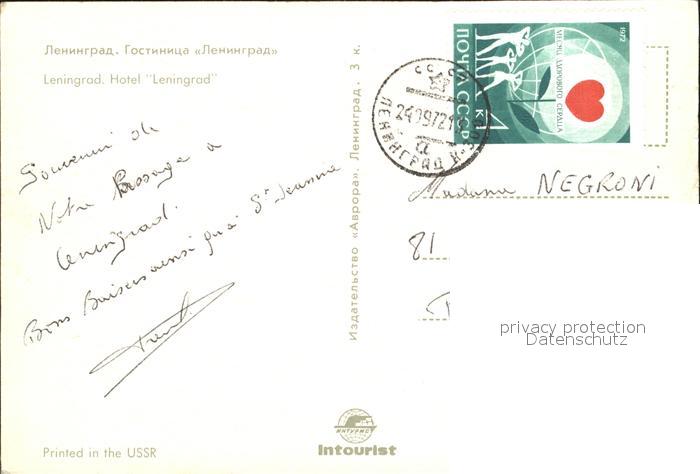 Ленинград. Гостиница «Ленинград»
Leningrad. Hotel "Leningrad"
Souvenir de
Notre Passage a
Leningrad.
Bons Baisers ainsi qu'a St Jeanne
Издательство «Аврора». Ленинград. 3 к.
ПОЧТА СССР
4 к
МЕСЯЦ ЗДОРОВОГО СЕРДЦА
1972
СССР
ЛЕНИНГРАД
Madame NEGRONI
81
privacy protection
Datenschutz
ИНТУРИСТ
Intourist
Printed in the USSR